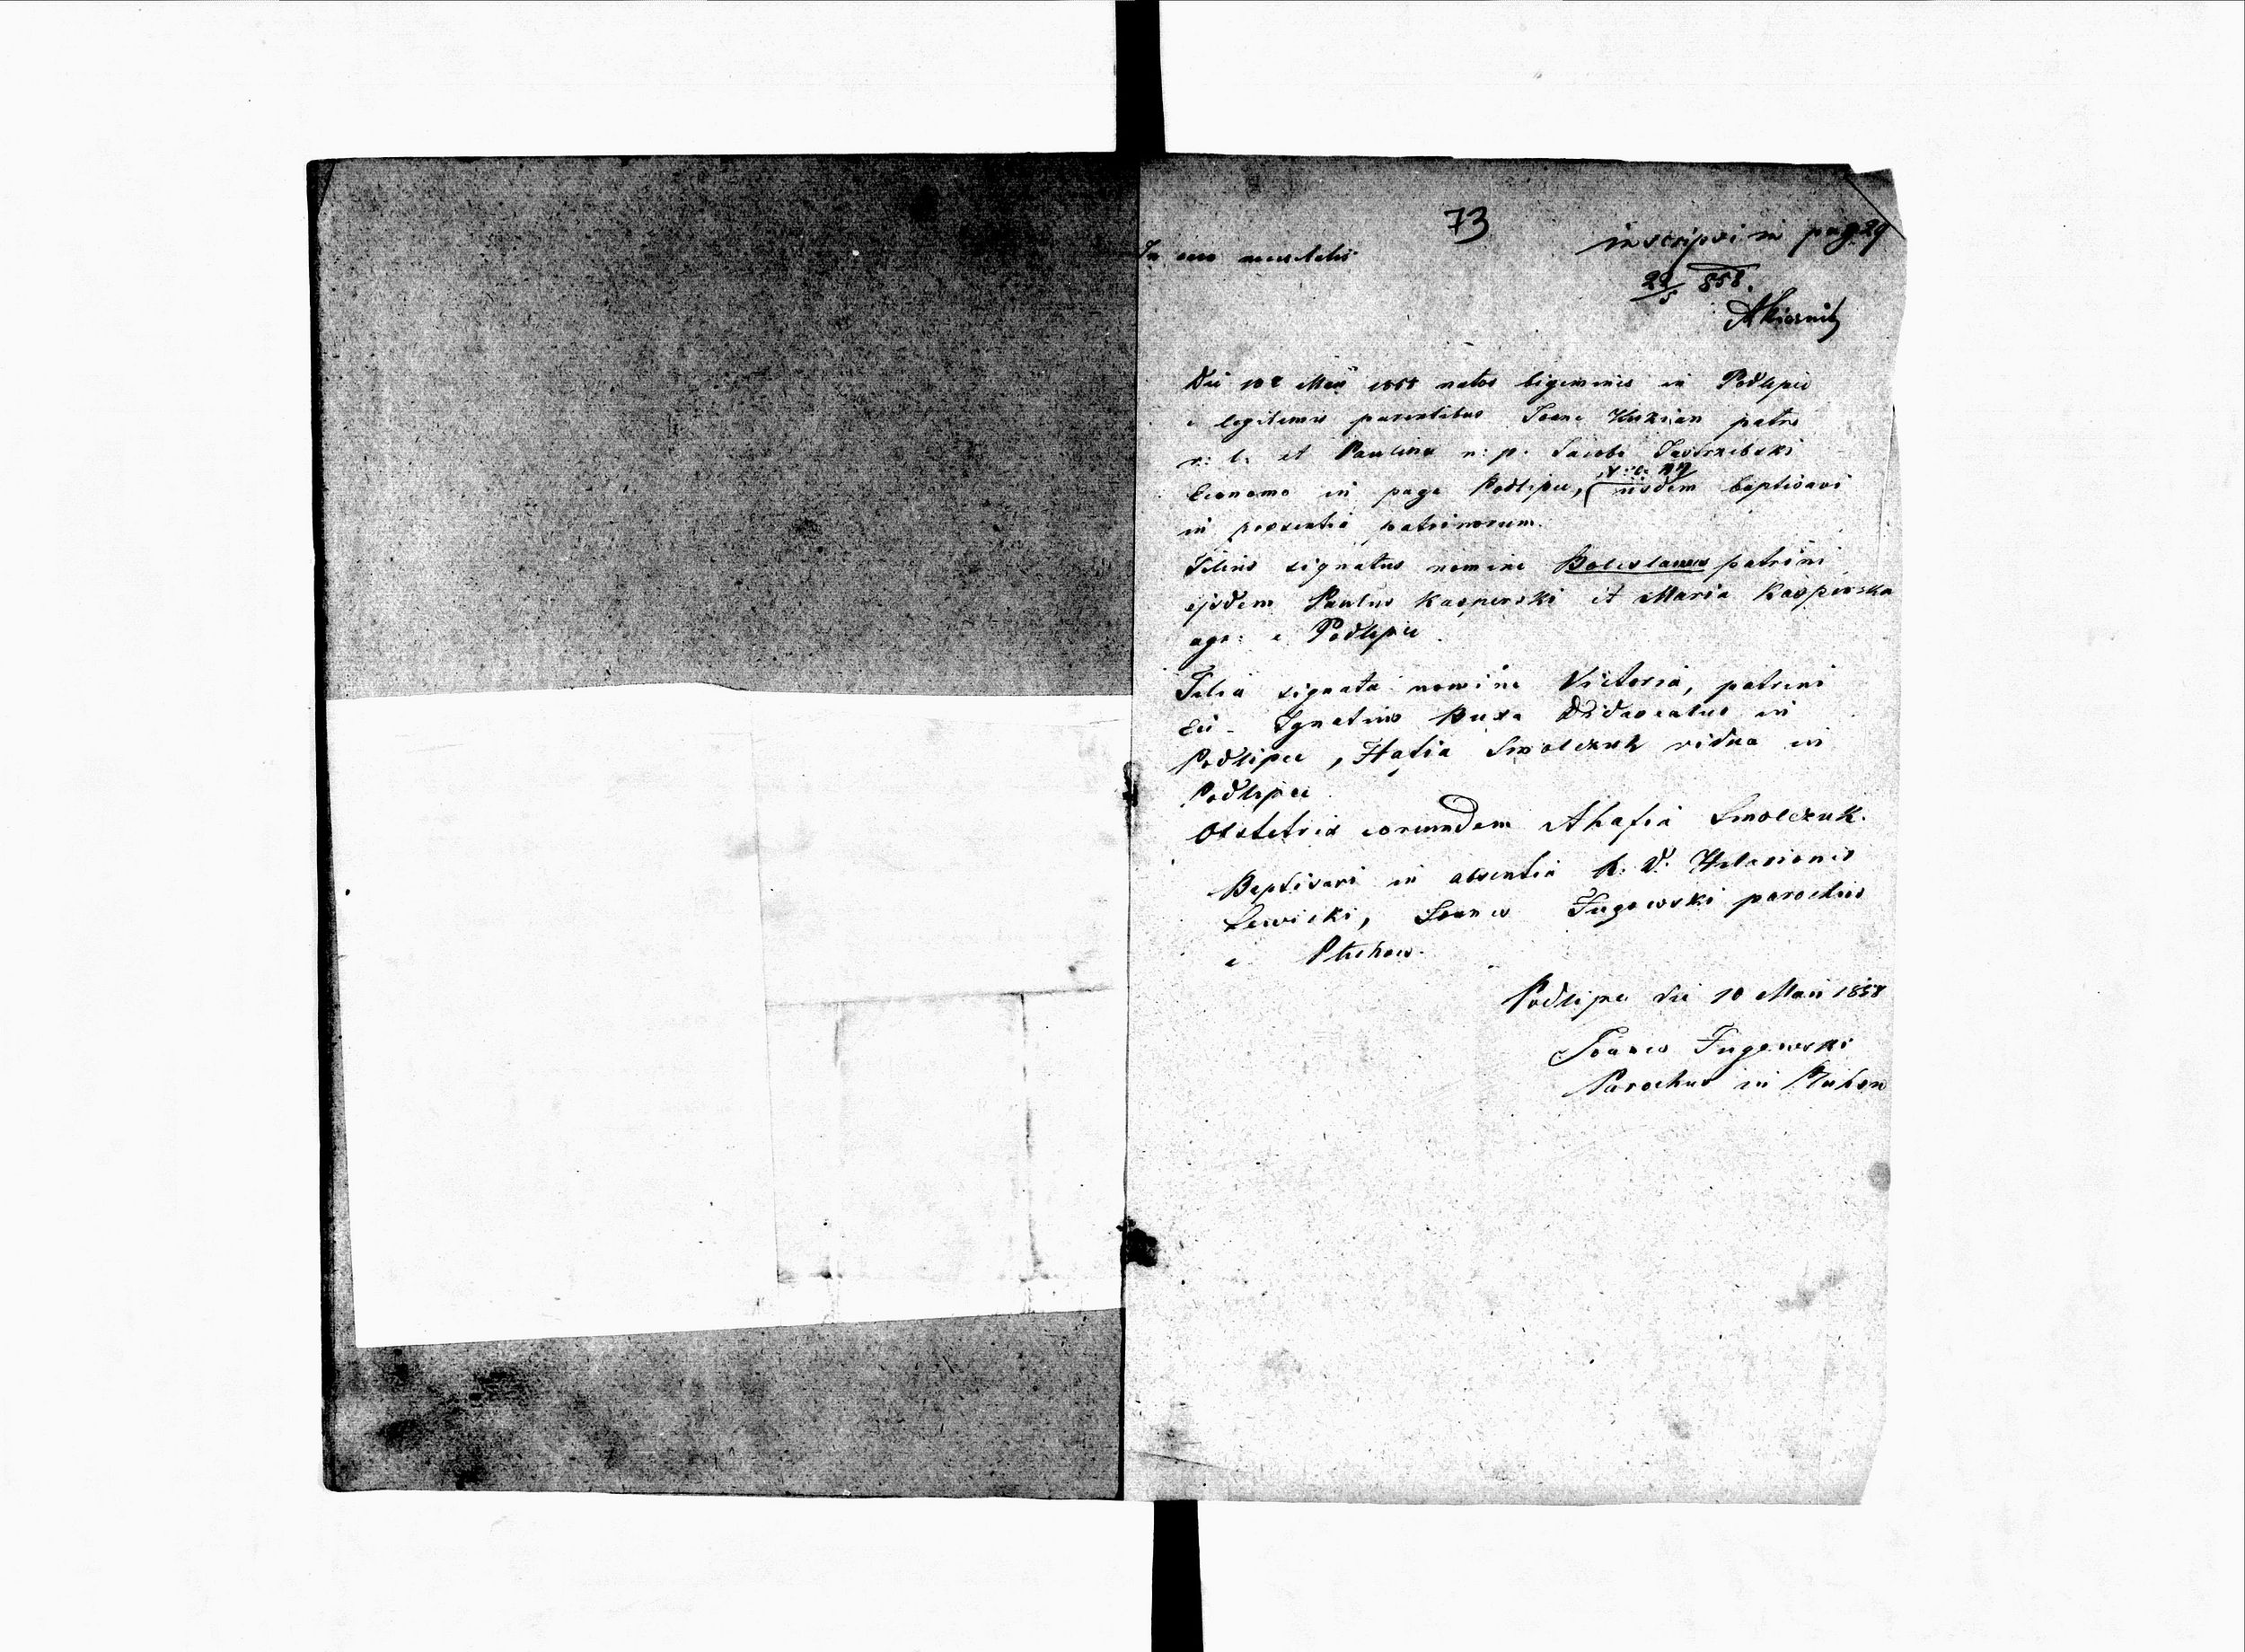 73
inscripsi in pag. 29
In casu necessitatis
22/5 858.
Die 10 Maii 1858 natos bigeminis in Podlipce
e legitimis parentibus Joane patre
r: l: et Paulina n: p. Jacobi Jastrzebski
Economo in pago Podlipce, iisdem baptisavi
in presentia patrinorum.
Filius signatus nomine Boleslaus patrini
ejsdem Paulus Kasperski et Maria Kasperska
agr: e Podlipce
Filia signata nomine Victoria, patrini
Ignatius Buxa in
Podlipce, Hafia Smolczuk vidua in
Podlipce
Obstetrix eorumdem Ahafia Smolczuk.
Baptisavi in absentia R. D. Helarionis
Lewicki, Joanes Jugowski parochus
e
Podlipce die 10 Maii 1858
Joanes Jugowski
Parochus in